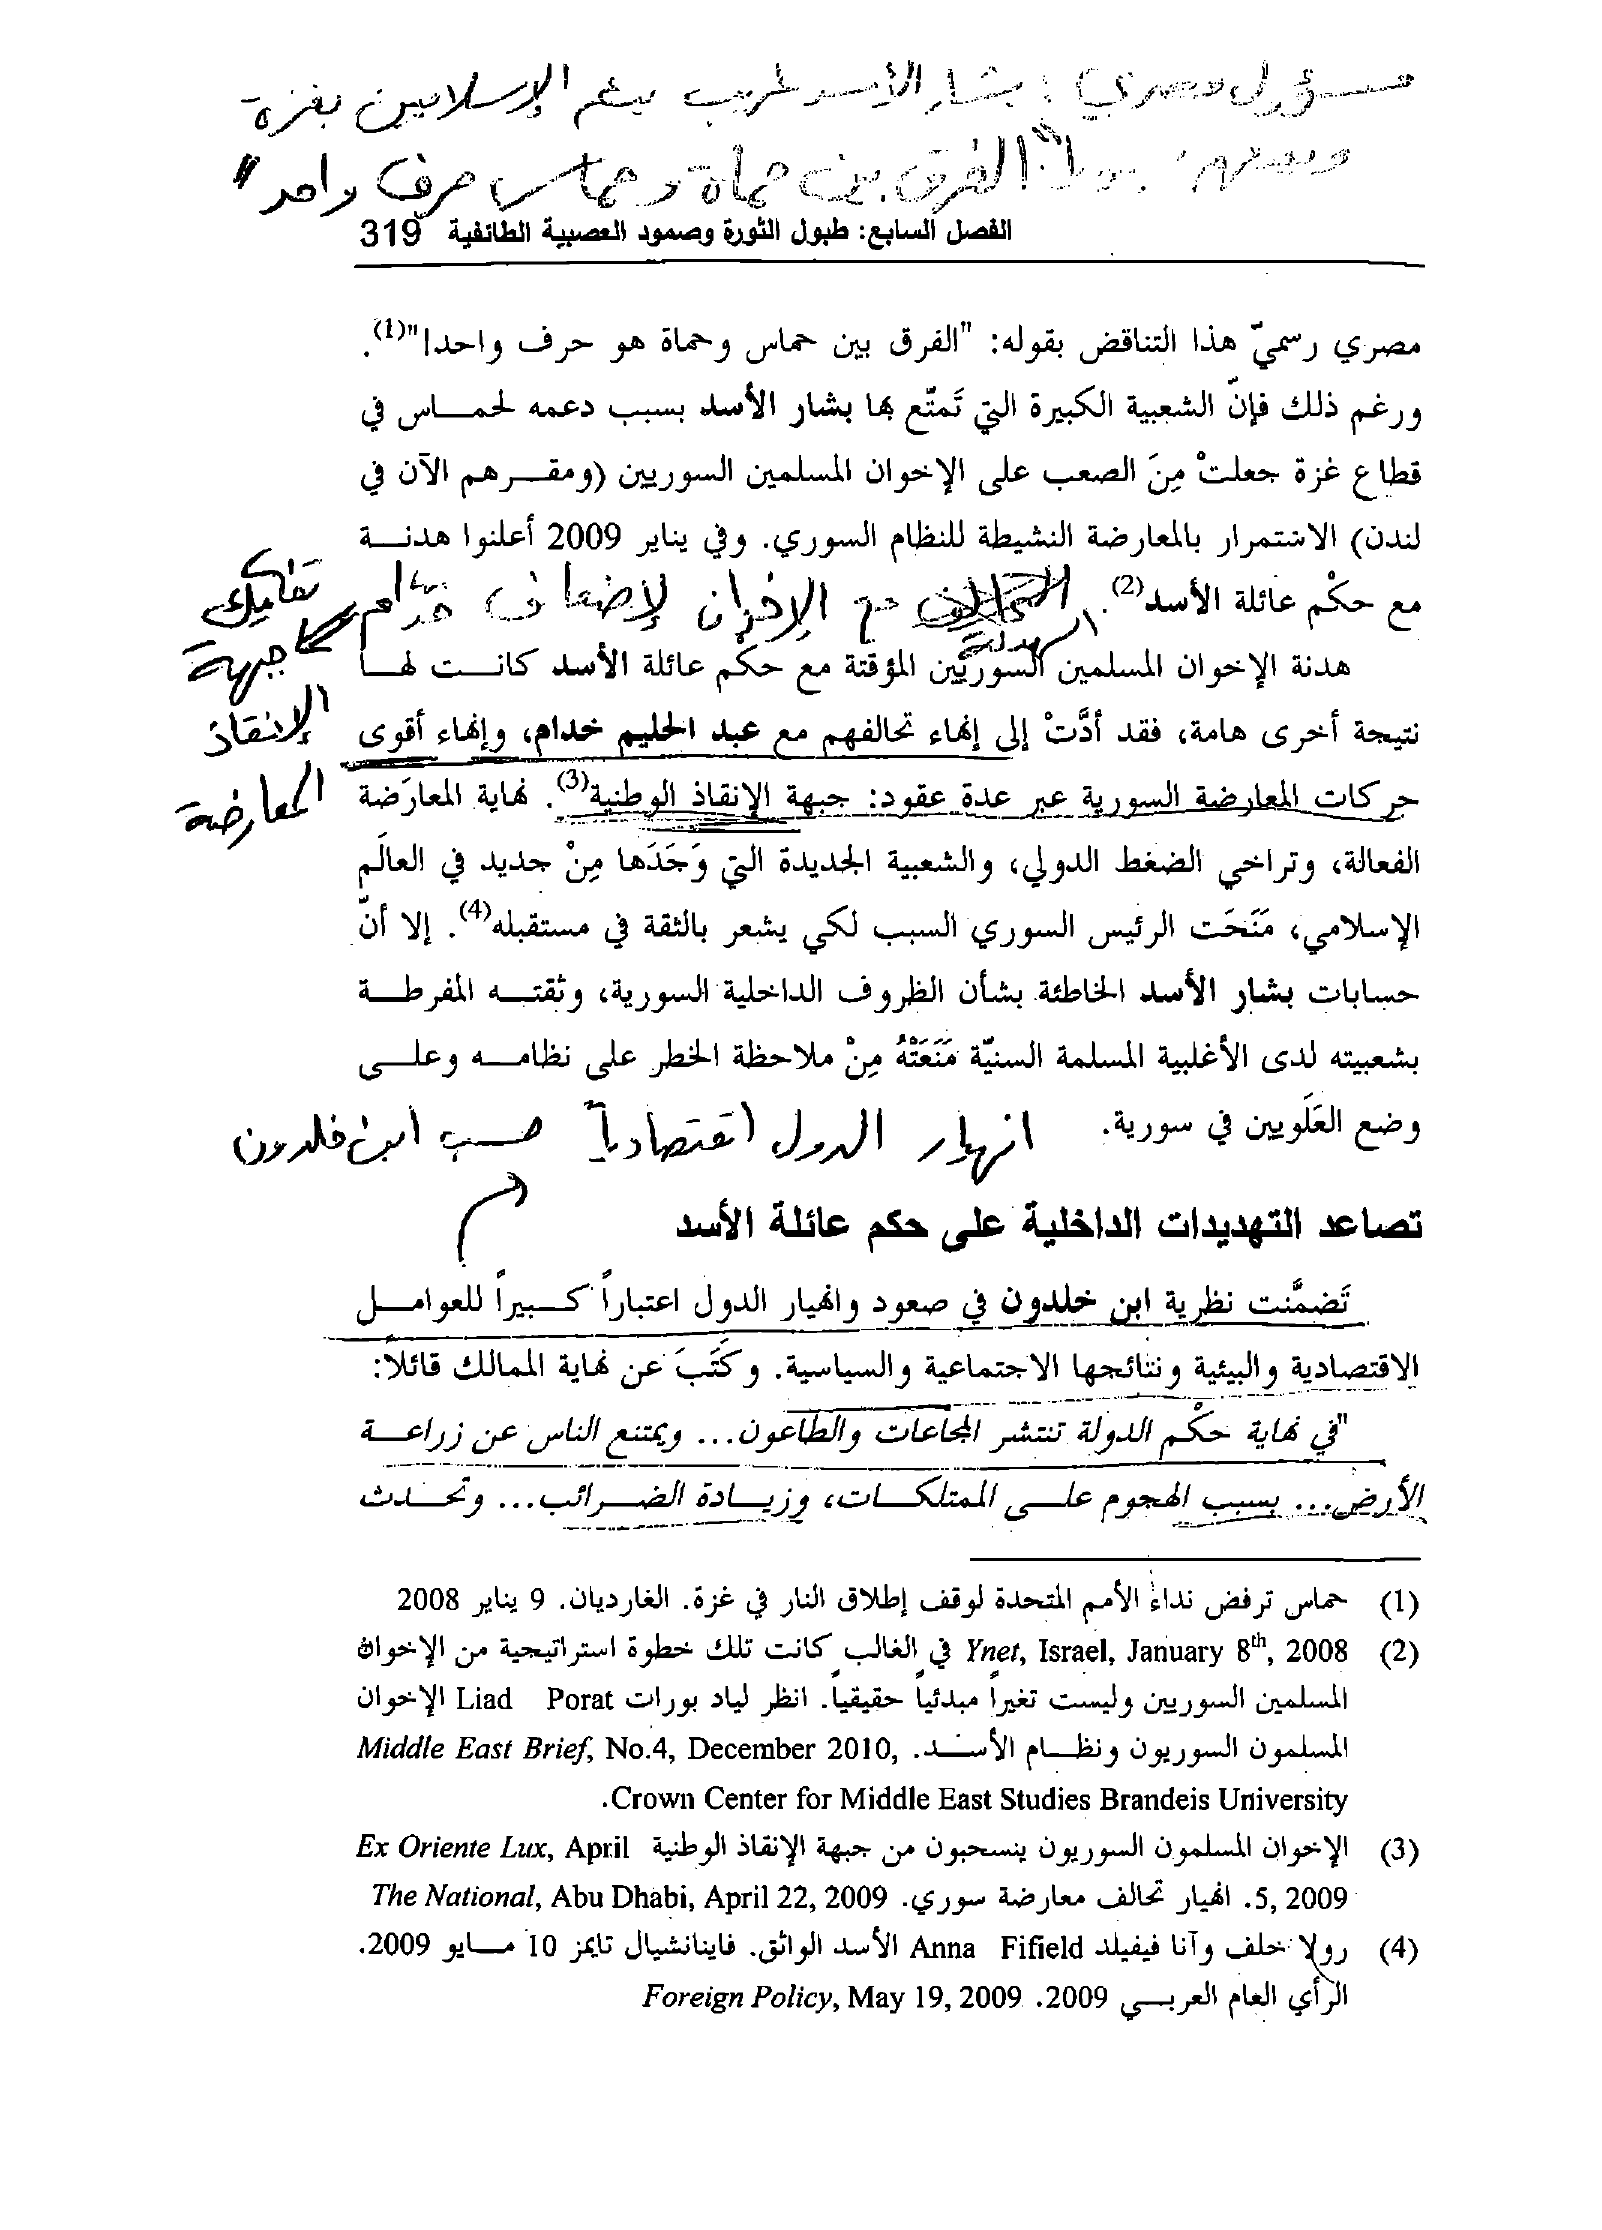 مسؤول مصري: بشار الأسد غريب يدعم الإسلاميين بغزة
"الفرق بين حماة وحماس حرف واحد"
الفصل السابع: طبول الثورة وصمود العصبية الطائفية 319
مصري رسميّ هذا التناقض بقوله: "الفرق بين حماس وحماة هو حرف واحد!"(1).
ورغم ذلك فإنّ الشعبية الكبيرة التي تَمتّع بها بشار الأسد بسبب دعمه لحماس في
قطاع غزة جعلتْ مِنَ الصعب على الإخوان المسلمين السوريين (ومقرهم الآن في
لندن) الاستمرار بالمعارضة النشيطة للنظام السوري. وفي يناير 2009 أعلنوا هدنة
مع حكْم عائلة الأسد(2).
الهدنة مع الإخوان لإضعاف خدّام
تفكيك
جبهة
الإنقاذ
المعارضة
هدنة الإخوان المسلمين السوريّين المؤقتة مع حكْم عائلة الأسد كانت لها
نتيجة أخرى هامة، فقد أدَّتْ إلى إنهاء تحالفهم مع عبد الحليم خدام، وإنهاء أقوى
حركات المعارضة السورية عبر عدة عقود: جبهة الإنقاذ الوطنية(3). نهاية المعارَضة
الفعالة، وتراخي الضغط الدولي، والشعبية الجديدة التي وَجَدَها مِنْ جديد في العالَم
الإسلامي، مَنَحَت الرئيس السوري السبب لكي يشعر بالثقة في مستقبله(4). إلا أنّ
حسابات بشار الأسد الخاطئة بشأن الظروف الداخلية السورية، وثقته المفرطة
بشعبيته لدى الأغلبية المسلمة السنيّة مَنَعَتْهُ مِنْ ملاحظة الخطر على نظامه وعلى
وضع العَلَويين في سورية.
انهيار الدول اقتصادياً حسب ابن خلدون
تصاعد التهديدات الداخلية على حكم عائلة الأسد
تَضمَّنت نظرية ابن خلدون في صعود وانهيار الدول اعتباراً كبيراً للعوامل
الاقتصادية والبيئية ونتائجها الاجتماعية والسياسية. وكَتَبَ عن نهاية الممالك قائلاً:
"في نهاية حكْم الدولة تنتشر المجاعات والطاعون... ويمتنع الناس عن زراعة
الأرض... بسبب الهجوم على الممتلكات، وزيادة الضرائب... وتحدث
(1) حماس ترفض نداء الأمم المتحدة لوقف إطلاق النار في غزة. الغارديان. 9 يناير 2008
(2) Ynet, Israel, January 8th, 2008 في الغالب كانت تلك خطوة استراتيجية من الإخوان
المسلمين السوريين وليست تغيراً مبدئياً حقيقياً. انظر لياد بورات Liad Porat الإخوان
المسلمون السوريون ونظام الأسد. Middle East Brief, No.4, December 2010,
Crown Center for Middle East Studies Brandeis University.
(3) الإخوان المسلمون السوريون ينسحبون من جبهة الإنقاذ الوطنية Ex Oriente Lux, April
5, 2009. انهيار تحالف معارضة سوري. The National, Abu Dhabi, April 22, 2009
(4) رولا خلف وآنا فيفيلد Anna Fifield الأسد الواثق. فاينانشيال تايمز 10 مايو 2009.
الرأي العام العربي 2009. Foreign Policy, May 19, 2009